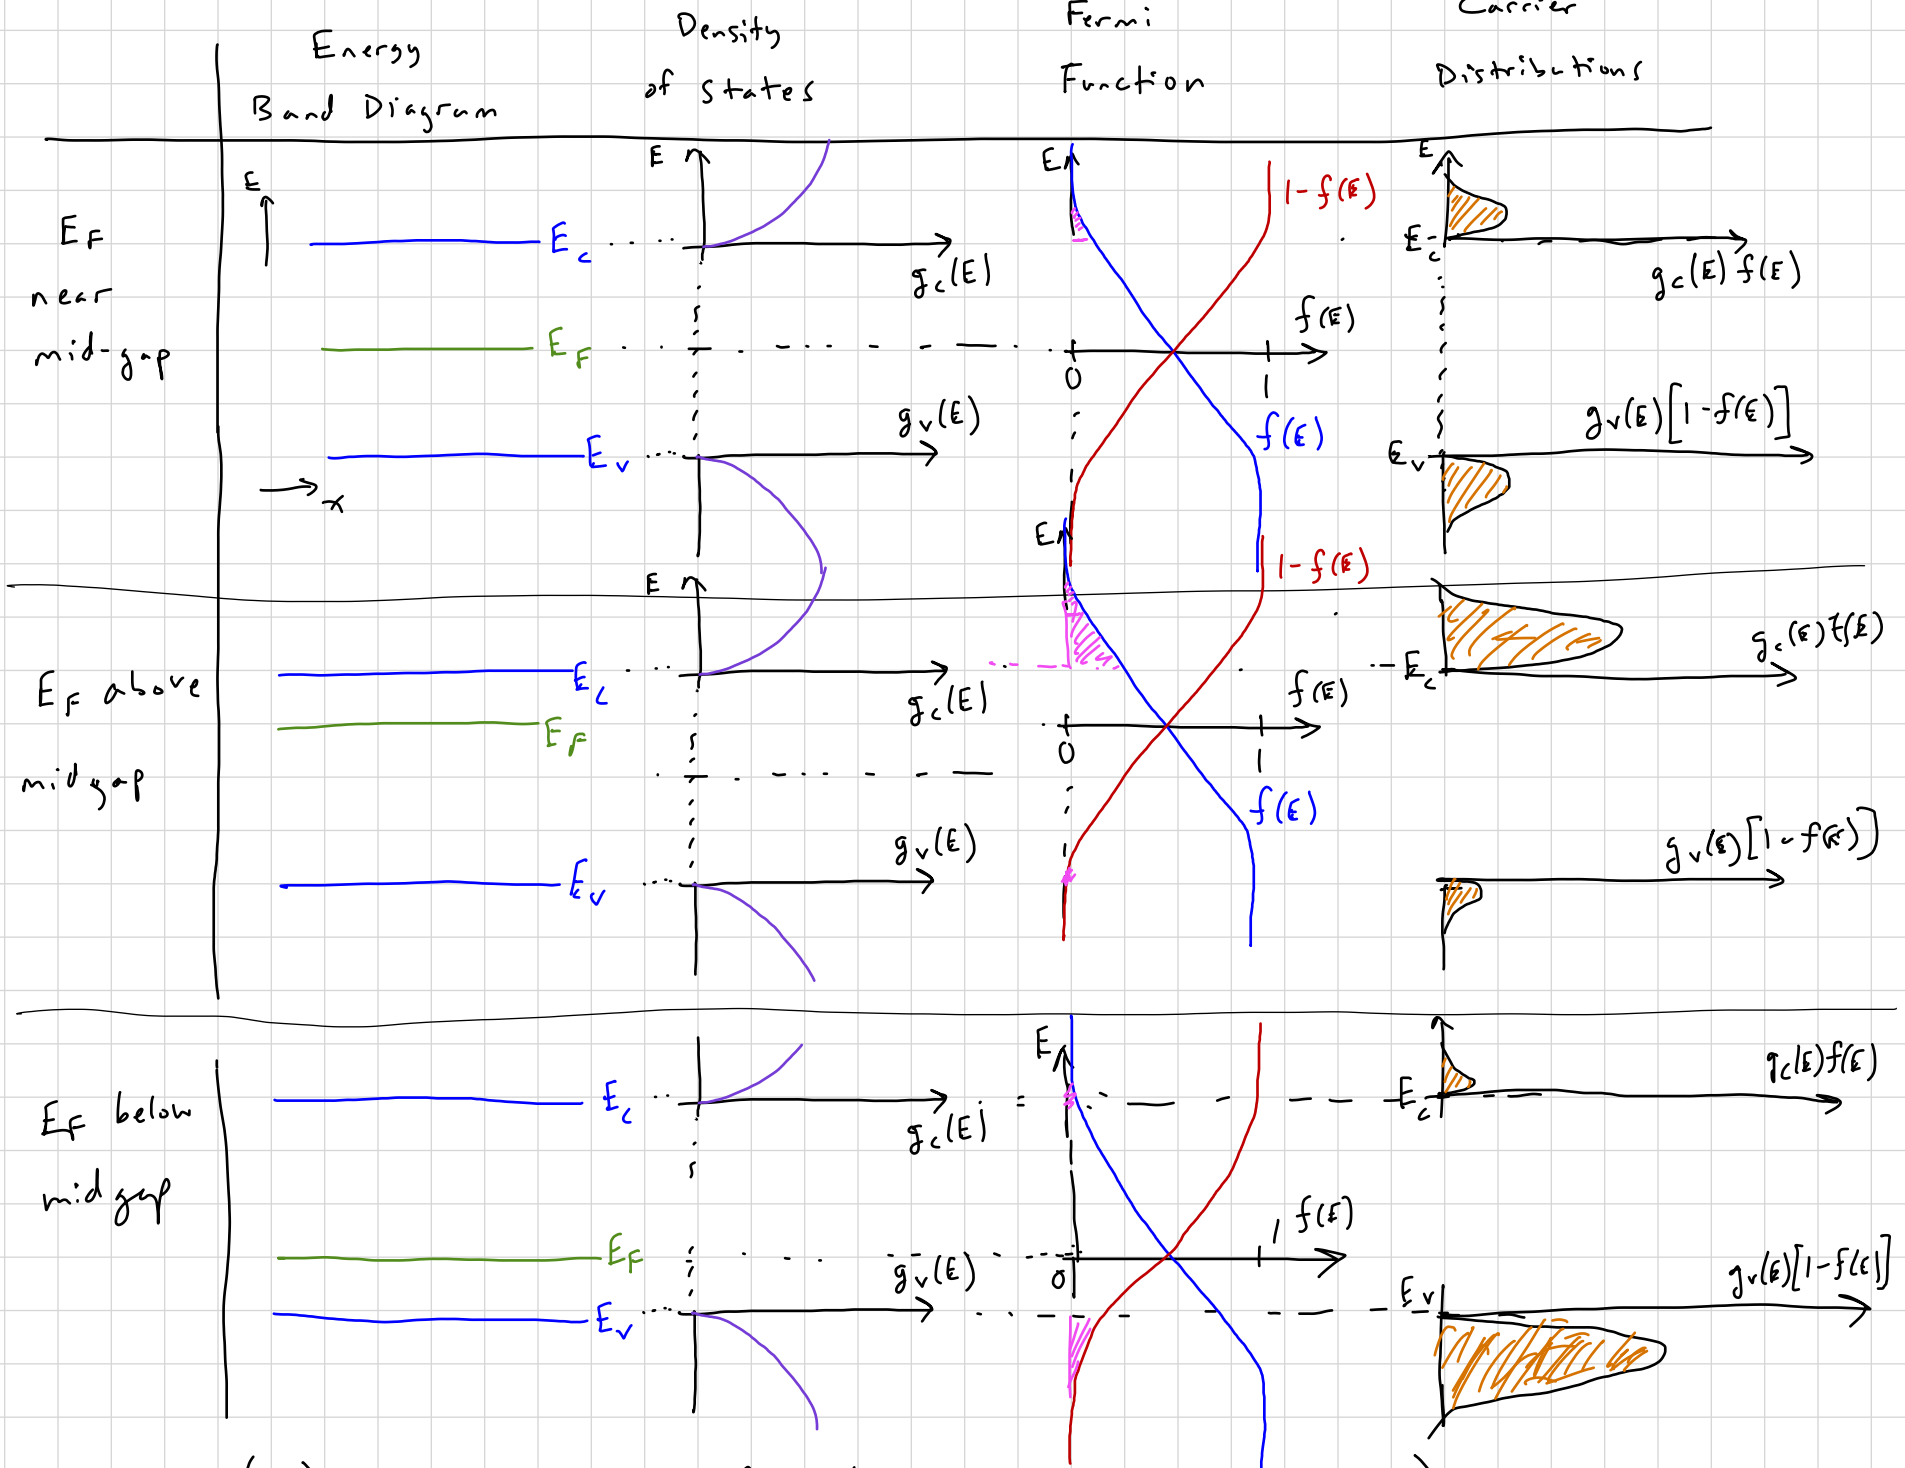 Energy
Band Diagram
Density
of states
Fermi
Function
Carrier
Distributions
E_F
near
mid-gap
E
E_c
E_F
E_v
x
E
g_c(E)
g_v(E)
E
1-f(E)
f(E)
0
1
f(E)
E
E_c
g_c(E) f(E)
g_v(E)[1-f(E)]
E_v
E_F above
midgap
E_c
E_F
E_v
E
g_c(E)
g_v(E)
E
1-f(E)
f(E)
0
1
f(E)
E_c
g_c(E) f(E)
g_v(E)[1-f(E)]
E_F below
midgap
E_c
E_F
E_v
g_c(E)
g_v(E)
E
f(E)
0
1
E_c
g_c(E)f(E)
E_v
g_v(E)[1-f(E)]